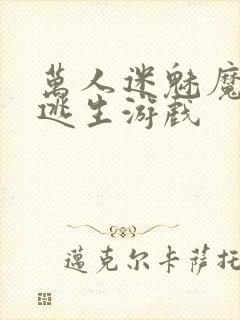 萬人迷魅魔
逃生游戲
邁克尔卡薩托